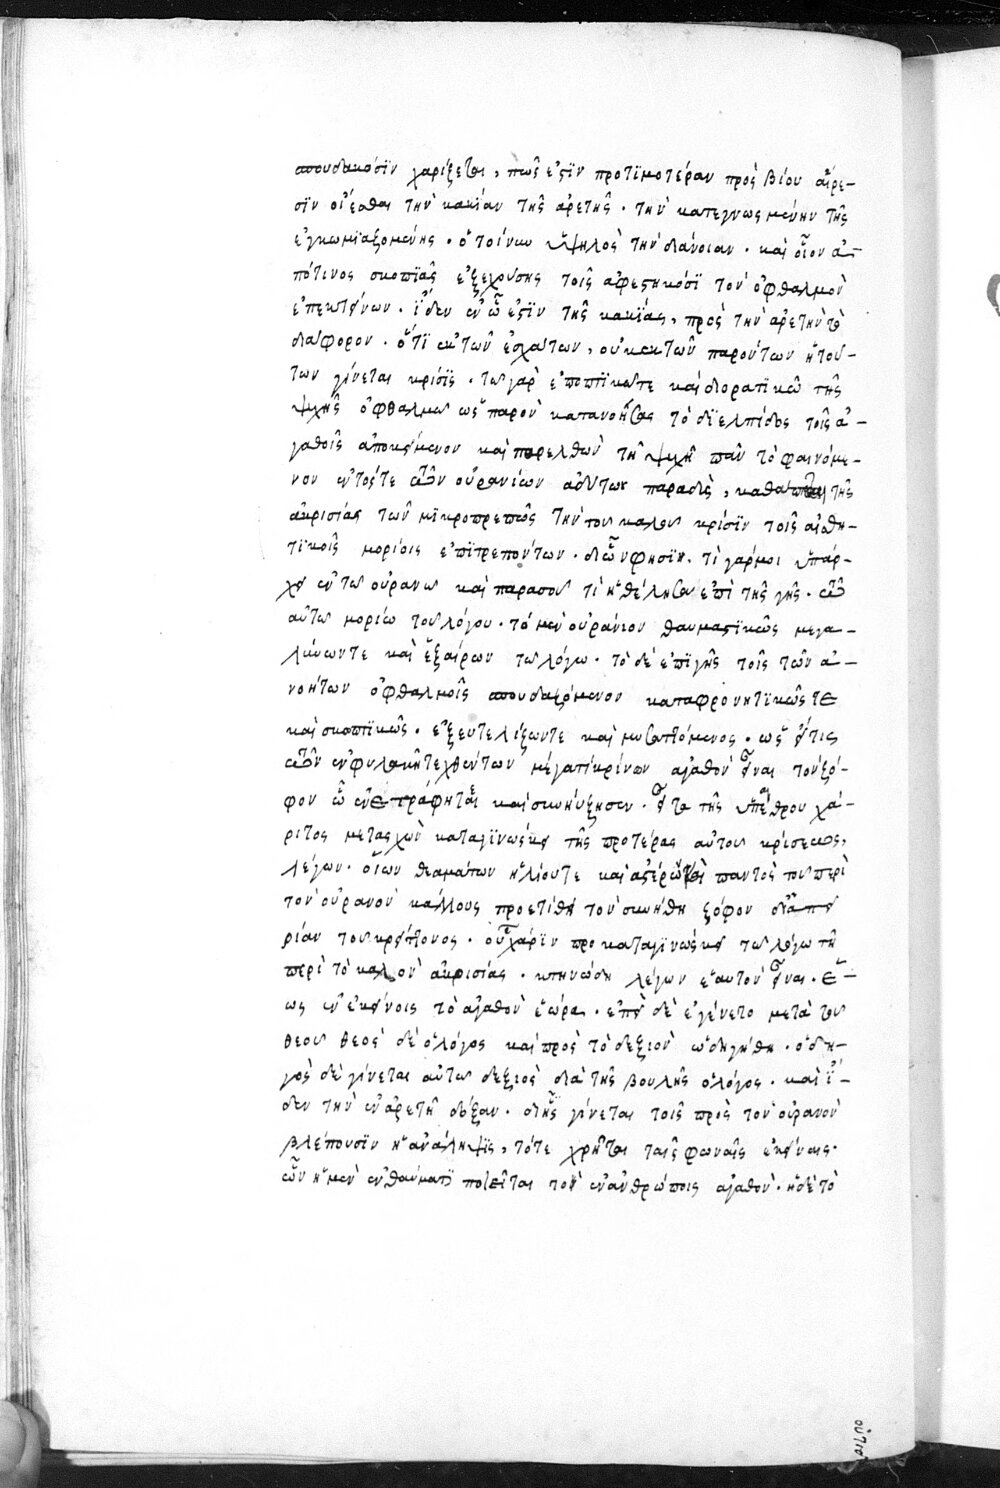 σπουδακόσϊν χαρίζεται, πῶς ἐστϊν προτϊμοτέραν πρὸς βίου αἵρε-
σϊν οἴεσθαι τὴν κακίαν τῆς ἀρετῆς. τὴν κατεγνωσμένην τῆς
ἐγκωμϊαζομένης. ὁ τοίνυν ὑψηλὸς τὴν διάνοιαν. καὶ οἷον ἀ-
πό τινος σκοπϊᾶς ἐξεχούσης τοῖς ἀφεστηκόσϊ τὸν ὀφθαλμὸν
ἐπεκτείνων. ἴδεν ἐν ὧ ἐστϊν τῆς κακίας, πρὸς τὴν ἀρετὴν τὸ
διάφορον. ὅτϊ ἐκ τῶν ἐσχάτων, οὐκ ἐκ τῶν παρόντων ἡ τού-
των γίνεται κρίσϊς. τῶ γὰρ ἐποπτϊκῶ τε καὶ διορατϊκῶ τῆς
ψυχῆς ὀφθαλμῶ ὡς παρὸν κατανοήσας τὸ δϊ ἐλπίδος τοῖς ἀ-
γαθοῖς ἀποκείμενον καὶ παρελθὼν τῆ ψυχῆ πᾶν τὸ φαινόμε-
νον ἐντός τε τῶν οὐρανίων ἀδύτων παραδὺς, τῆς
ἀκρισίας τῶν μϊκροπρεπῶς τὴν τοῦ καλοῦ κρίσϊν τοῖς αἰσθη-
τϊκοῖς μορίοις ἐπϊτρεπόντων. δϊ ὧν φησϊν. τί γάρ μοι ὑπάρ-
χει ἐν τῶ οὐρανῶ καὶ παρὰ σοῦ τί ἠθέλησα ἐπὶ τῆς γῆς. τῶ
αὐτῶ μορίω τοῦ λόγου. τὸ μὲν οὐράνιον θαυμαστϊκῶς μεγα-
λύνων τε καὶ ἐξαίρων τῶ λόγω. τὸ δὲ ἐπϊ γῆς τοῖς τῶν ἀ-
νοήτων ὀφθαλμοῖς σπουδαζόμενον καταφρονητϊκῶς τε
καὶ σκοπτϊκῶς. ἐξευτελίζων τε καὶ μυσαττόμενος. ὡς εἴ τις
τῶν ἐν φυλακῆ τεχθέντων μέγα τϊ κρίνων ἀγαθὸν εἶναι τὸν ζό-
φον ὧ ἐνετράφη τε καὶ συνηύξησεν. εἶτα τῆς ὑπαίθρου χά-
ριτος μετασχὼν καταγϊνώσκει τῆς προτέρας αὐτοῦ κρίσεως,
λέγων. οἵων θεαμάτων ἡλίου τε καὶ ἀστέρων καὶ παντὸς τοῦ περὶ
τὸν οὐρανὸν κάλλους προετίθει τὸν συνήθη ζόφον δϊ ἀπει-
ρίαν τοῦ κρείττονος. οὗ χάρϊν προκαταγϊνώσκει τῶ λόγω τῆ
περὶ τὸ καλὸν ἀκρισίας. κτηνώδη λέγων ἑαυτὸν εἶναι. ἕ-
ως ἐν ἐκείνοις τὸ ἀγαθὸν ἑώρα. ἐπεὶ δὲ ἐγένετο μετὰ τοῦ
θεοῦ θεὸς δὲ ὁ λόγος καὶ πρὸς τὸ δεξιὸν ὡδηγήθη. ὁδη-
γὸς δὲ γίνεται αὐτῶ δεξιὸς διὰ τῆς βουλῆς ὁ λόγος. καὶ ἴ-
δεν τὴν ἐν ἀρετῆ δόξαν. δϊ ἧς γίνεται τοῖς πρὸς τὸν οὐρανὸν
βλέπουσϊν ἡ ἀνάληψϊς, τότε χρῆται ταῖς φωναῖς ἐκείναις.
ὧν ἡ μὲν ἐν θαύματϊ ποιεῖται τὸ ἐν ἀνθρώποις ἀγαθὸν. ἡ δὲ τὸ